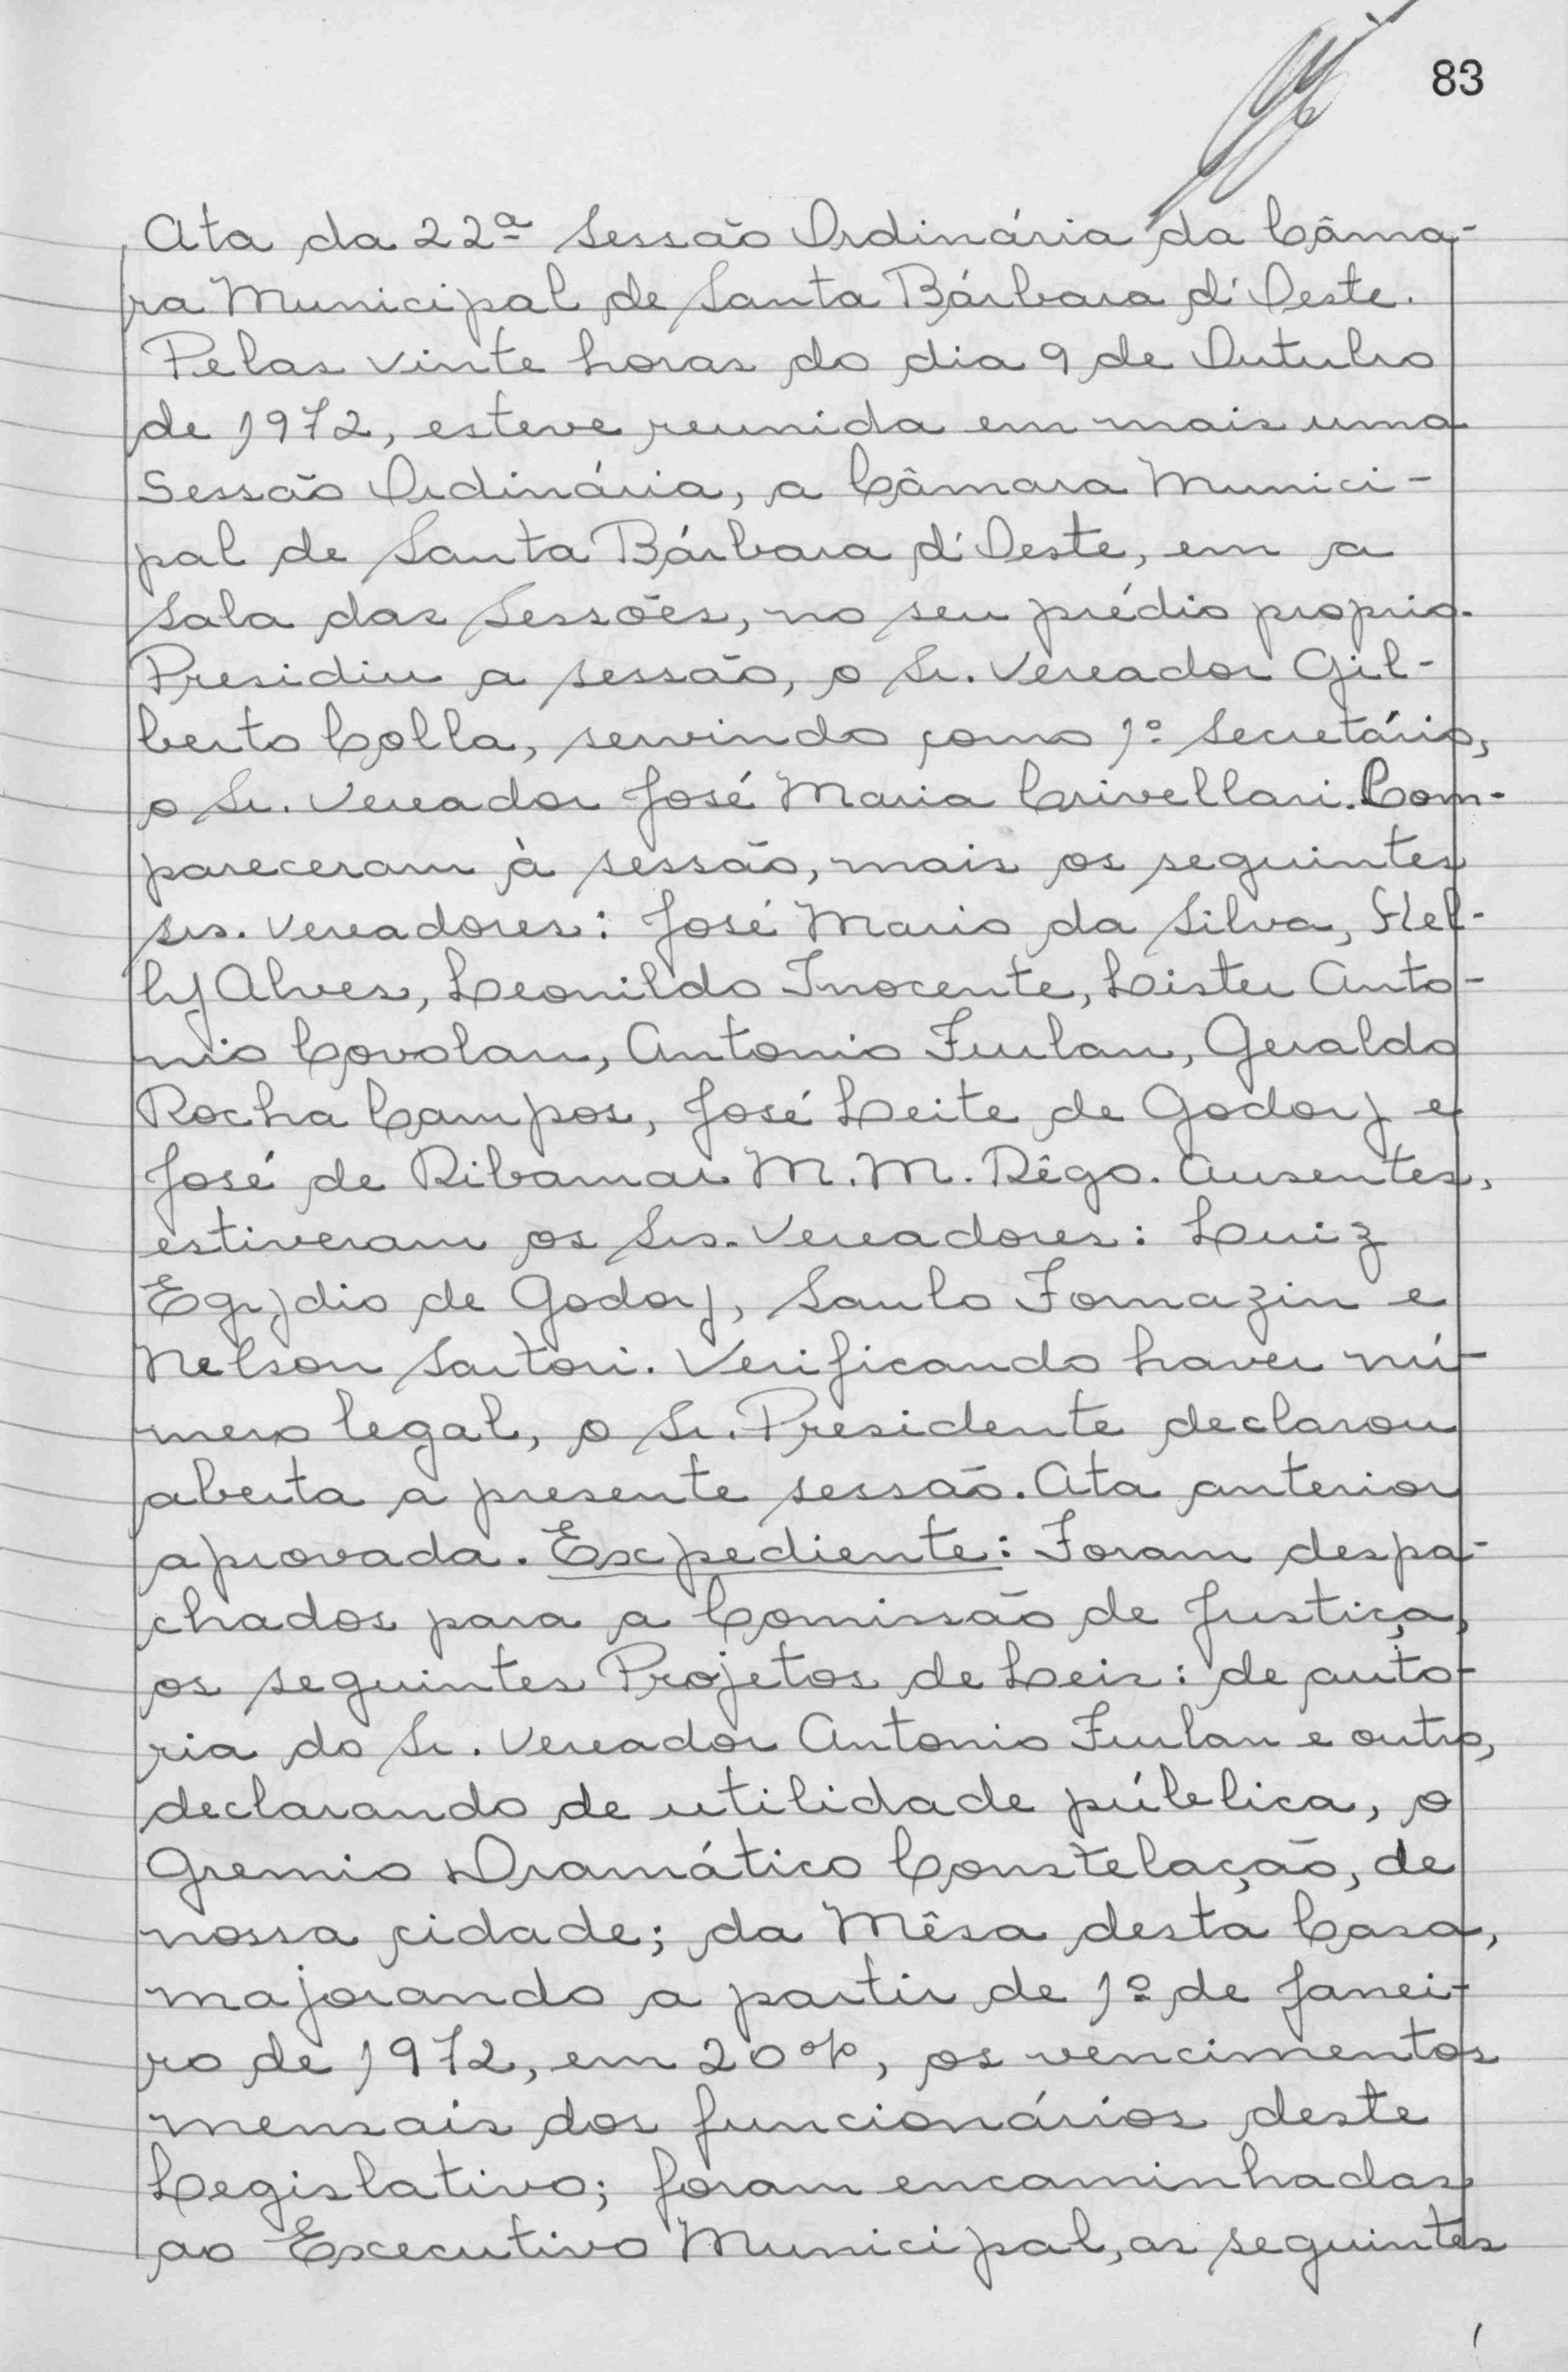 83
Ata da 22ª Sessão Ordinária da Câma-
ra Municipal de Santa Bárbara d'Oeste.
Pelas vinte horas do dia 9 de Outubro
de 1972, esteve reunida em mais uma
Sessão Ordinária, a Câmara Munici-
pal de Santa Bárbara d'Oeste, em a
Sala das Sessões, no seu prédio proprio.
Presidiu a sessão, o Sr. Vereador Gil-
berto Colla, servindo como 1º Secretário,
o Sr. Vereador José Maria Crivellari. Com-
pareceram à sessão, mais os seguintes
srs. Vereadores: José Mario da Silva, Hel-
ly Alves, Leonildo Inocente, Lister Anto-
nio Covolan, Antonio Furlan, Geraldo
Rocha Campos, José Leite de Godoy e
José de Ribamar M. M. Rêgo. Ausentes,
estiveram os Srs. Vereadores: Luiz
Egydio de Godoy, Saulo Fornazin e
Nelson Sartori. Verificando haver nú-
mero legal, o Sr. Presidente declarou
aberta a presente sessão. Ata anterior
aprovada. Expediente: Foram despa-
chados para a Comissão de Justiça,
os seguintes Projetos de Leis: de auto-
ria do Sr. Vereador Antonio Furlan e outro,
declarando de utilidade pública, o
Gremio Dramático Constelação, de
nossa cidade; da Mêsa desta Casa,
majorando a partir de 1º de Janei-
ro de 1972, em 20%, os vencimentos
mensais dos funcionários deste
Legislativo; foram encaminhadas
ao Executivo Municipal, as seguintes